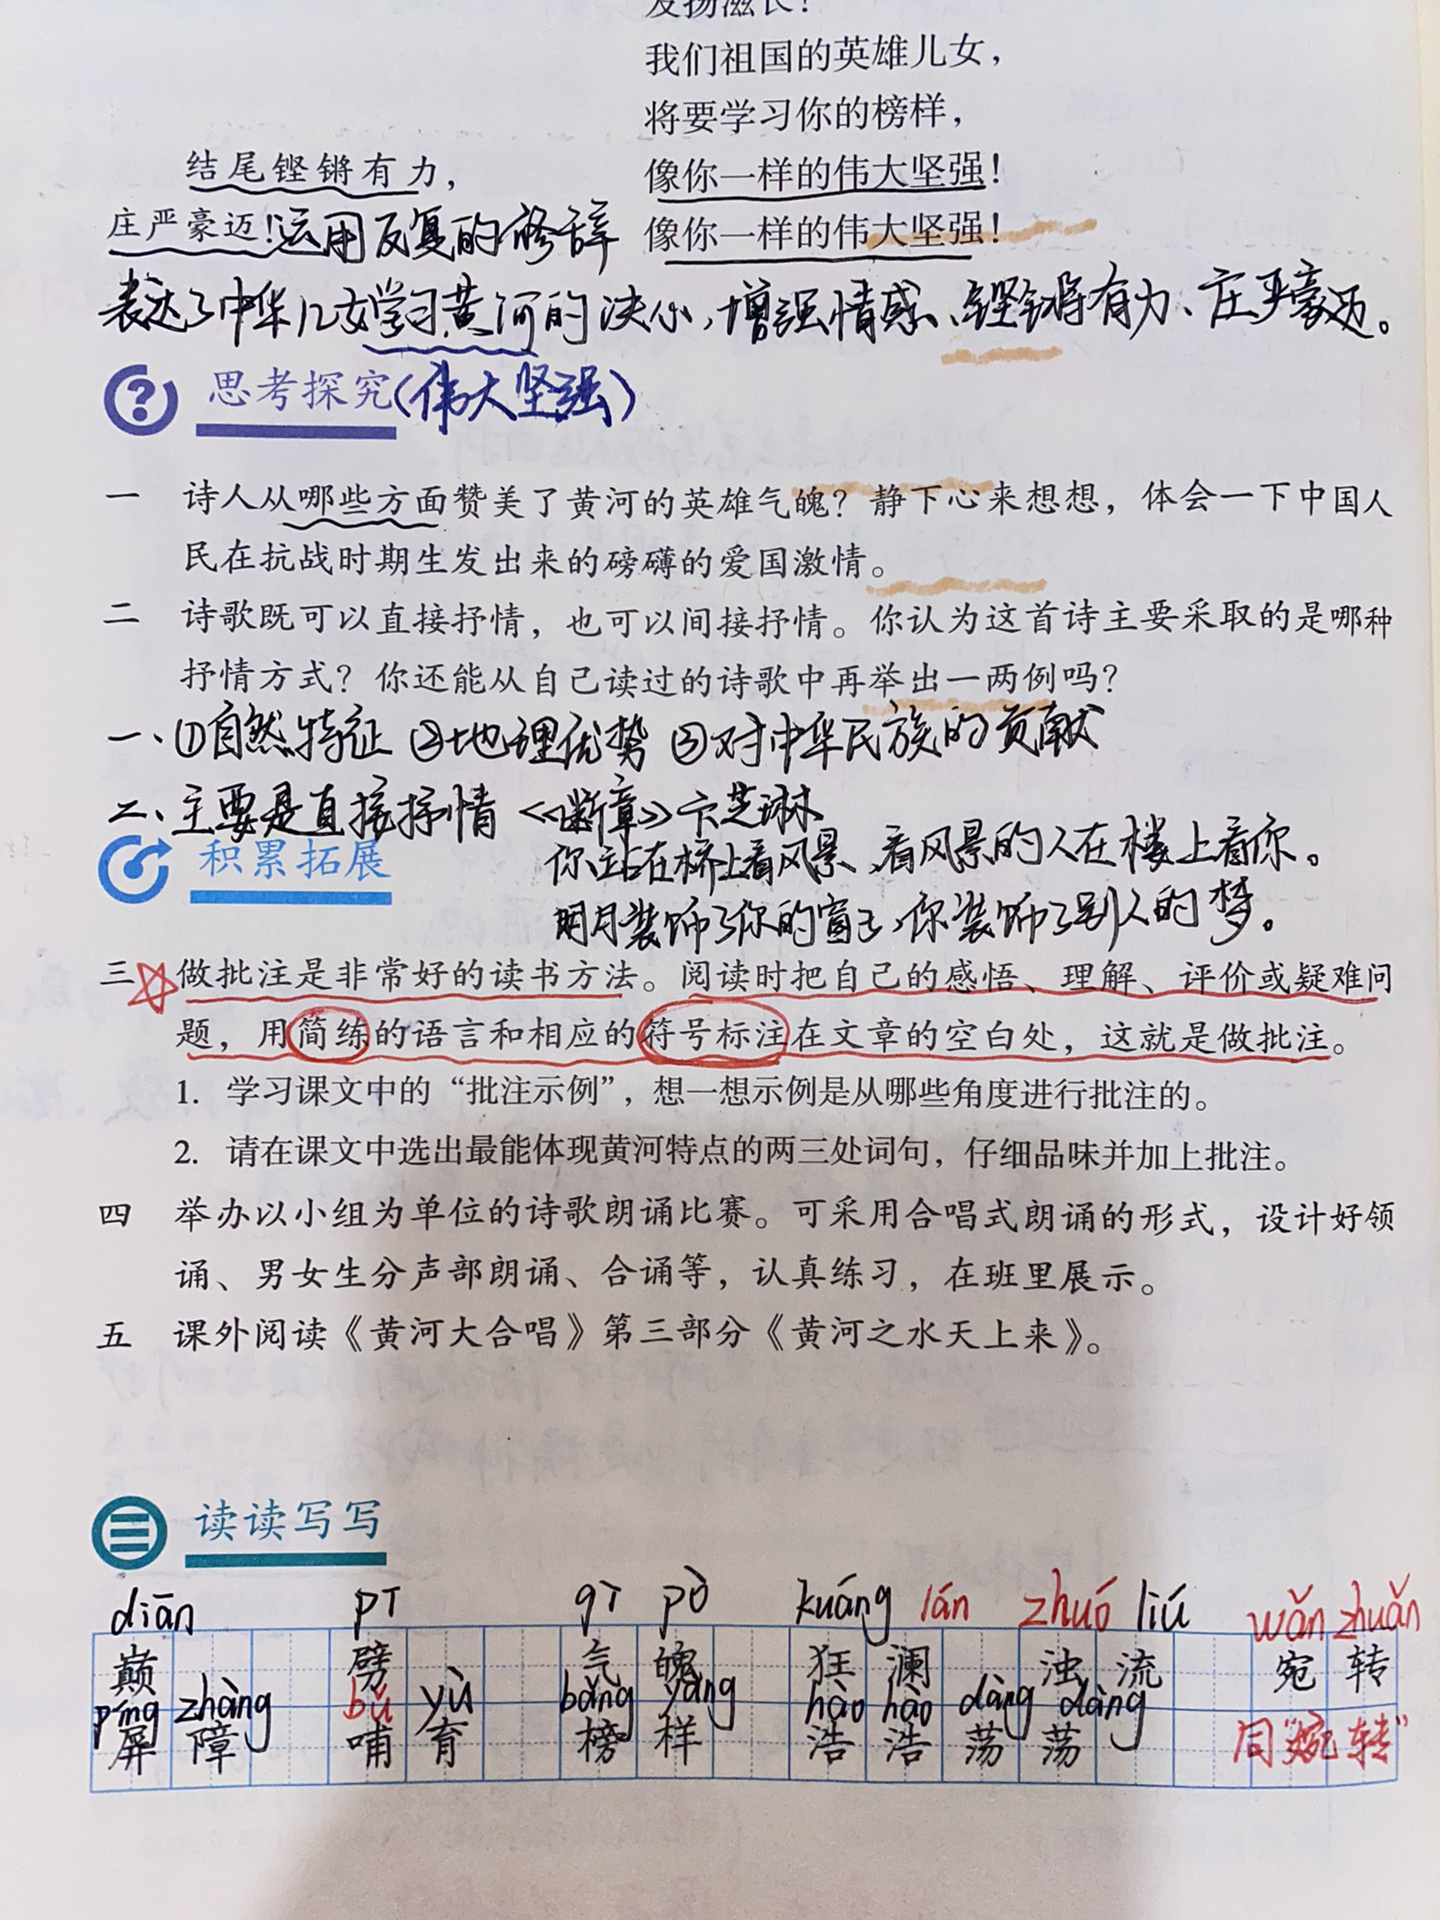 发扬滋长！
我们祖国的英雄儿女，
将要学习你的榜样，
结尾铿锵有力，
像你一样的伟大坚强！
庄严豪迈！运用反复的修辞
像你一样的伟大坚强！
表达了中华儿女学习黄河的决心，增强情感、铿锵有力、庄严豪迈。
思考探究（伟大坚强）
一 诗人从哪些方面赞美了黄河的英雄气魄？静下心来想想，体会一下中国人
民在抗战时期生发出来的磅礴的爱国激情。
二 诗歌既可以直接抒情，也可以间接抒情。你认为这首诗主要采取的是哪种
抒情方式？你还能从自己读过的诗歌中再举出一两例吗？
一、①自然特征 ②地理优势 ③对中华民族的贡献
二、主要是直接抒情 《断章》卞芝琳
积累拓展
你站在桥上看风景、看风景的人在楼上看你。
明月装饰了你的窗子、你装饰了别人的梦。
三 做批注是非常好的读书方法。阅读时把自己的感悟、理解、评价或疑难问
题，用简练的语言和相应的符号标注在文章的空白处，这就是做批注。
1. 学习课文中的“批注示例”，想一想示例是从哪些角度进行批注的。
2. 请在课文中选出最能体现黄河特点的两三处词句，仔细品味并加上批注。
四 举办以小组为单位的诗歌朗诵比赛。可采用合唱式朗诵的形式，设计好领
诵、男女生分声部朗诵、合诵等，认真练习，在班里展示。
五 课外阅读《黄河大合唱》第三部分《黄河之水天上来》。
读读写写
diān pī qì pò kuáng lán zhuó liú wǎn zhuǎn
巅 劈 气 魄 狂 澜 浊 流 宛 转
píng zhàng bǔ yù bǎng yàng hào hào dàng dàng
屏 障 哺 育 榜 样 浩 浩 荡 荡 同“婉转”